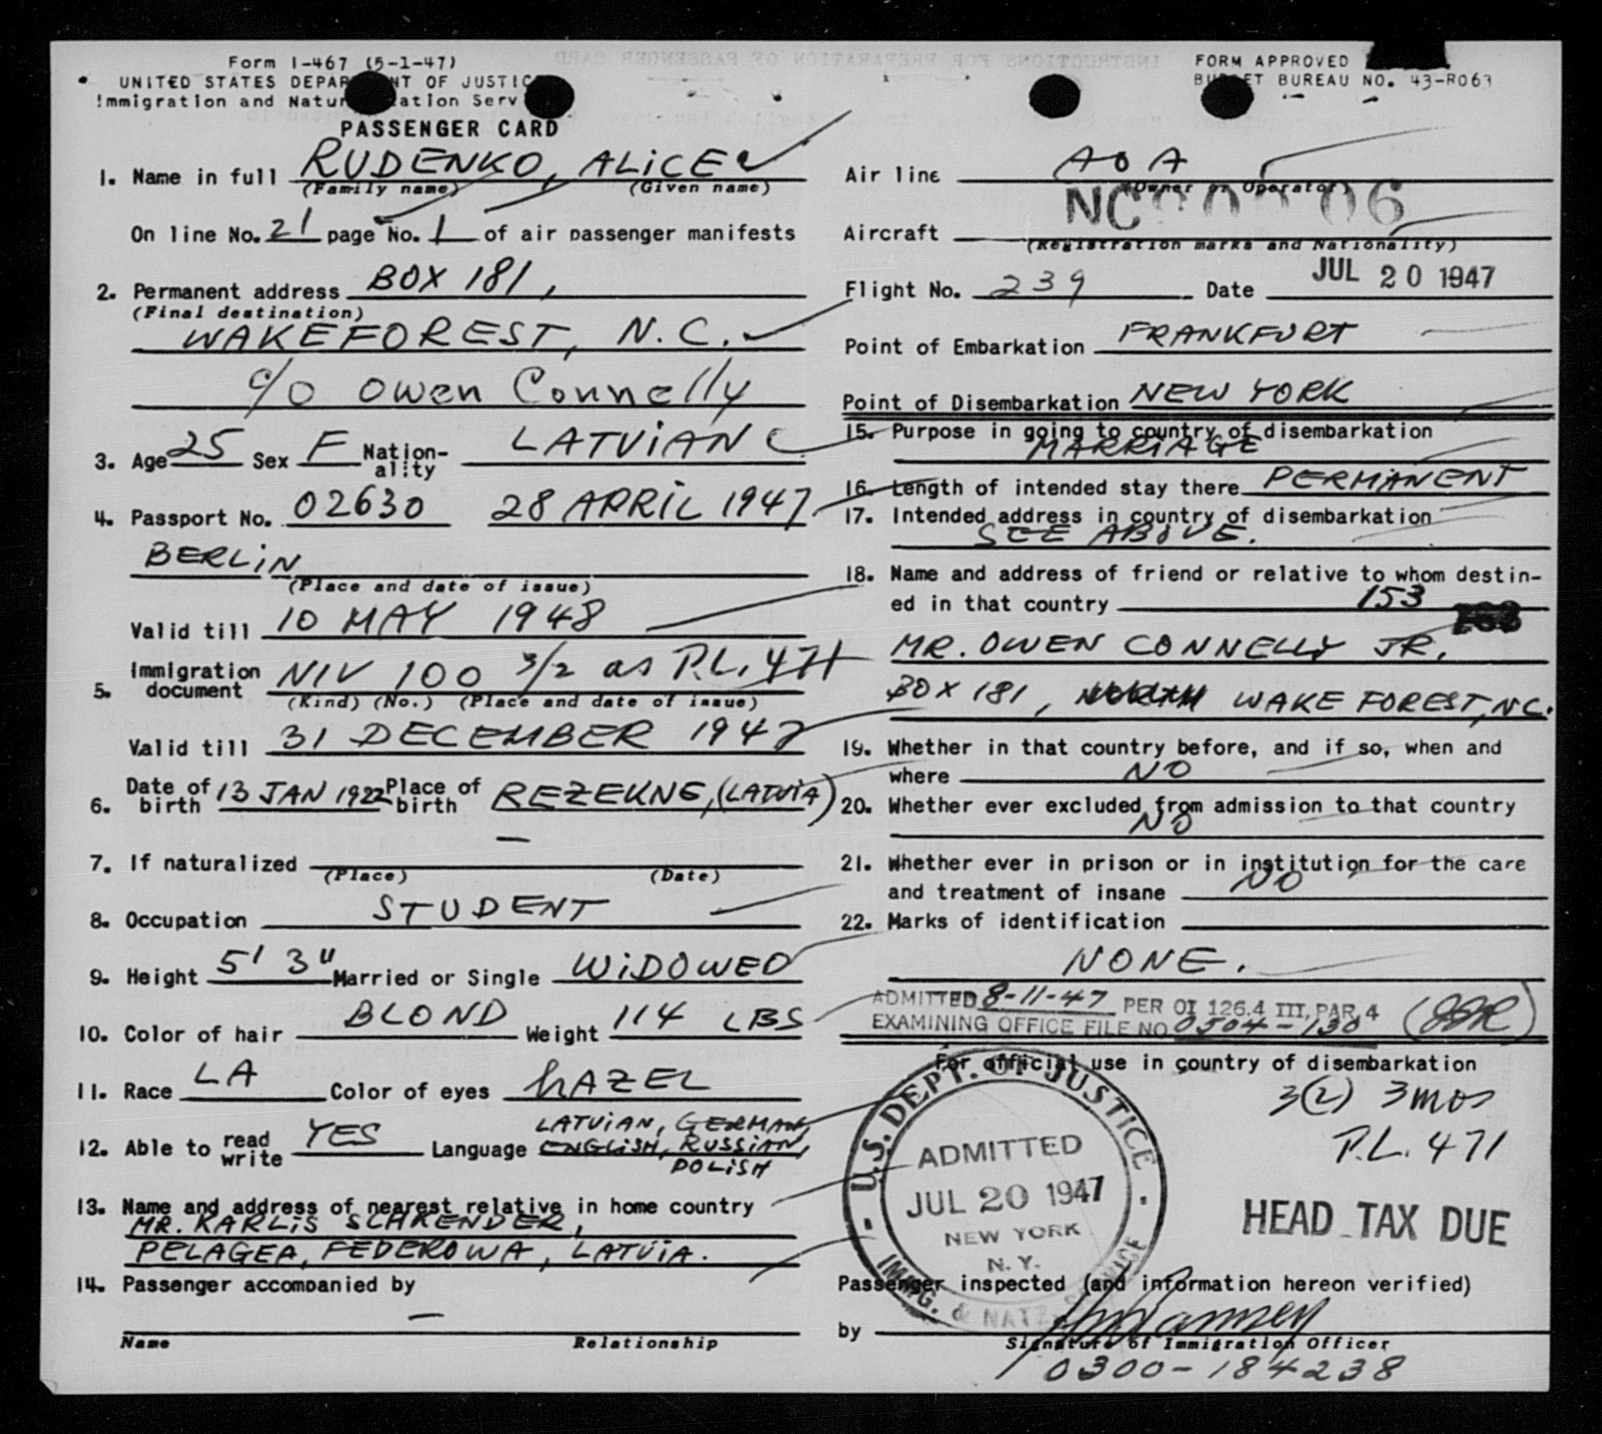 Form I-467 (5-1-47)
UNITED STATES DEPAR NT OF JUSTIC
Immigration and Natur ation Serv
PASSENGER CARD
FORM APPROVED
BU ET BUREAU NO. 43-R063
1. Name in full RUDENKO, ALICE
(Family name) (Given name)
On line No. 21 page No. 1 of air passenger manifests
2. Permanent address BOX 181,
(Final destination)
WAKEFOREST, N.C.
c/o Owen Connelly
3. Age 25 Sex F Nation-ality LATVIAN
4. Passport No. 02630 28 APRIL 1947
BERLIN
(Place and date of issue)
Valid till 10 MAY 1948
5. Immigration document NIV 100 3/2 as P.L. 471
(Kind) (No.) (Place and date of issue)
Valid till 31 DECEMBER 1947
6. Date of birth 13 JAN 1922 Place of birth REZEKNE, (LATVIA)
7. If naturalized —
(Place) (Date)
8. Occupation STUDENT
9. Height 5' 3" Married or Single WIDOWED
10. Color of hair BLOND Weight 114 LBS
11. Race LA Color of eyes HAZEL
12. Able to read write YES Language LATVIAN, GERMAN, ENGLISH, RUSSIAN, POLISH
13. Name and address of nearest relative in home country
MR. KARLIS SCHKENDER,
PELAGEA, FEDEROWA, LATVIA.
14. Passenger accompanied by
—
Name Relationship
Air line AOA
(Owner or Operator)
Aircraft NC 06
(Registration marks and Nationality)
Flight No. 239 Date JUL 20 1947
Point of Embarkation FRANKFURT
Point of Disembarkation NEW YORK
15. Purpose in going to country of disembarkation
MARRIAGE
16. Length of intended stay there PERMANENT
17. Intended address in country of disembarkation
SEE ABOVE.
18. Name and address of friend or relative to whom destin-
ed in that country 153
MR. OWEN CONNELLY JR.
BOX 181, WAKE FOREST, N.C.
19. Whether in that country before, and if so, when and
where NO
20. Whether ever excluded from admission to that country
NO
21. Whether ever in prison or in institution for the care
and treatment of insane NO
22. Marks of identification
NONE.
ADMITTED 8-11-47 PER OI 126.4 III, PAR. 4
EXAMINING OFFICE FILE NO 0504-130
For official use in country of disembarkation
3(2) 3 mos
P.L. 471
U.S. DEPT. OF JUSTICE
ADMITTED
JUL 20 1947
NEW YORK
N. Y.
IMMIG. & NATZ. SERVICE
HEAD TAX DUE
Passenger inspected (and information hereon verified)
by
Signature of Immigration Officer
0300-184238